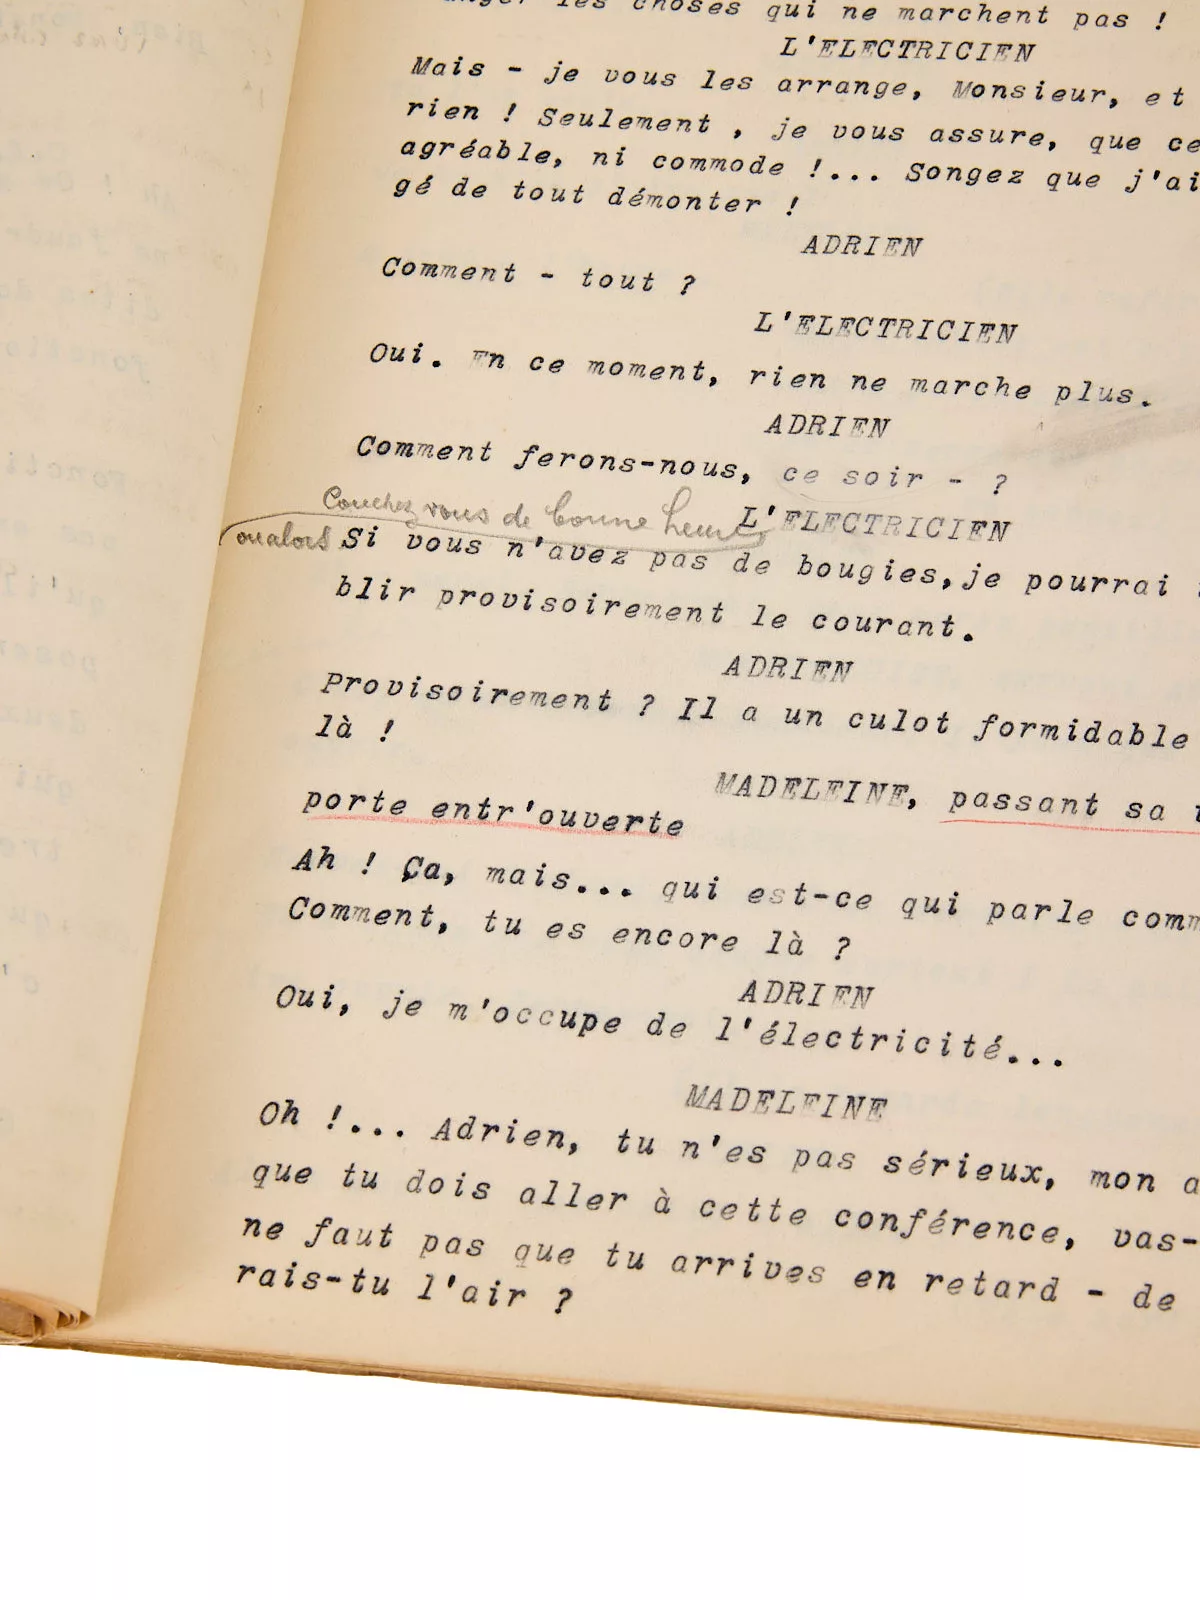 les choses qui ne marchent pas !
L'ELECTRICIEN
Mais - je vous les arrange, Monsieur, et
rien ! Seulement , je vous assure, que ce
agréable, ni commode !... Songez que j'ai
gé de tout démonter !
ADRIEN
Comment - tout ?
L'ELECTRICIEN
Oui. En ce moment, rien ne marche plus.
ADRIEN
Comment ferons-nous, ce soir - ?
Couchez vous de bonne heure
L'ELECTRICIEN
ou alors Si vous n'avez pas de bougies, je pourrai
blir provisoirement le courant.
ADRIEN
Provisoirement ? Il a un culot formidable
là !
MADELEINE, passant sa
porte entr'ouverte
Ah ! Ça, mais... qui est-ce qui parle comm
Comment, tu es encore là ?
ADRIEN
Oui, je m'occupe de l'électricité...
MADELEINE
Oh !... Adrien, tu n'es pas sérieux, mon a
que tu dois aller à cette conférence, vas-
ne faut pas que tu arrives en retard - de
rais-tu l'air ?